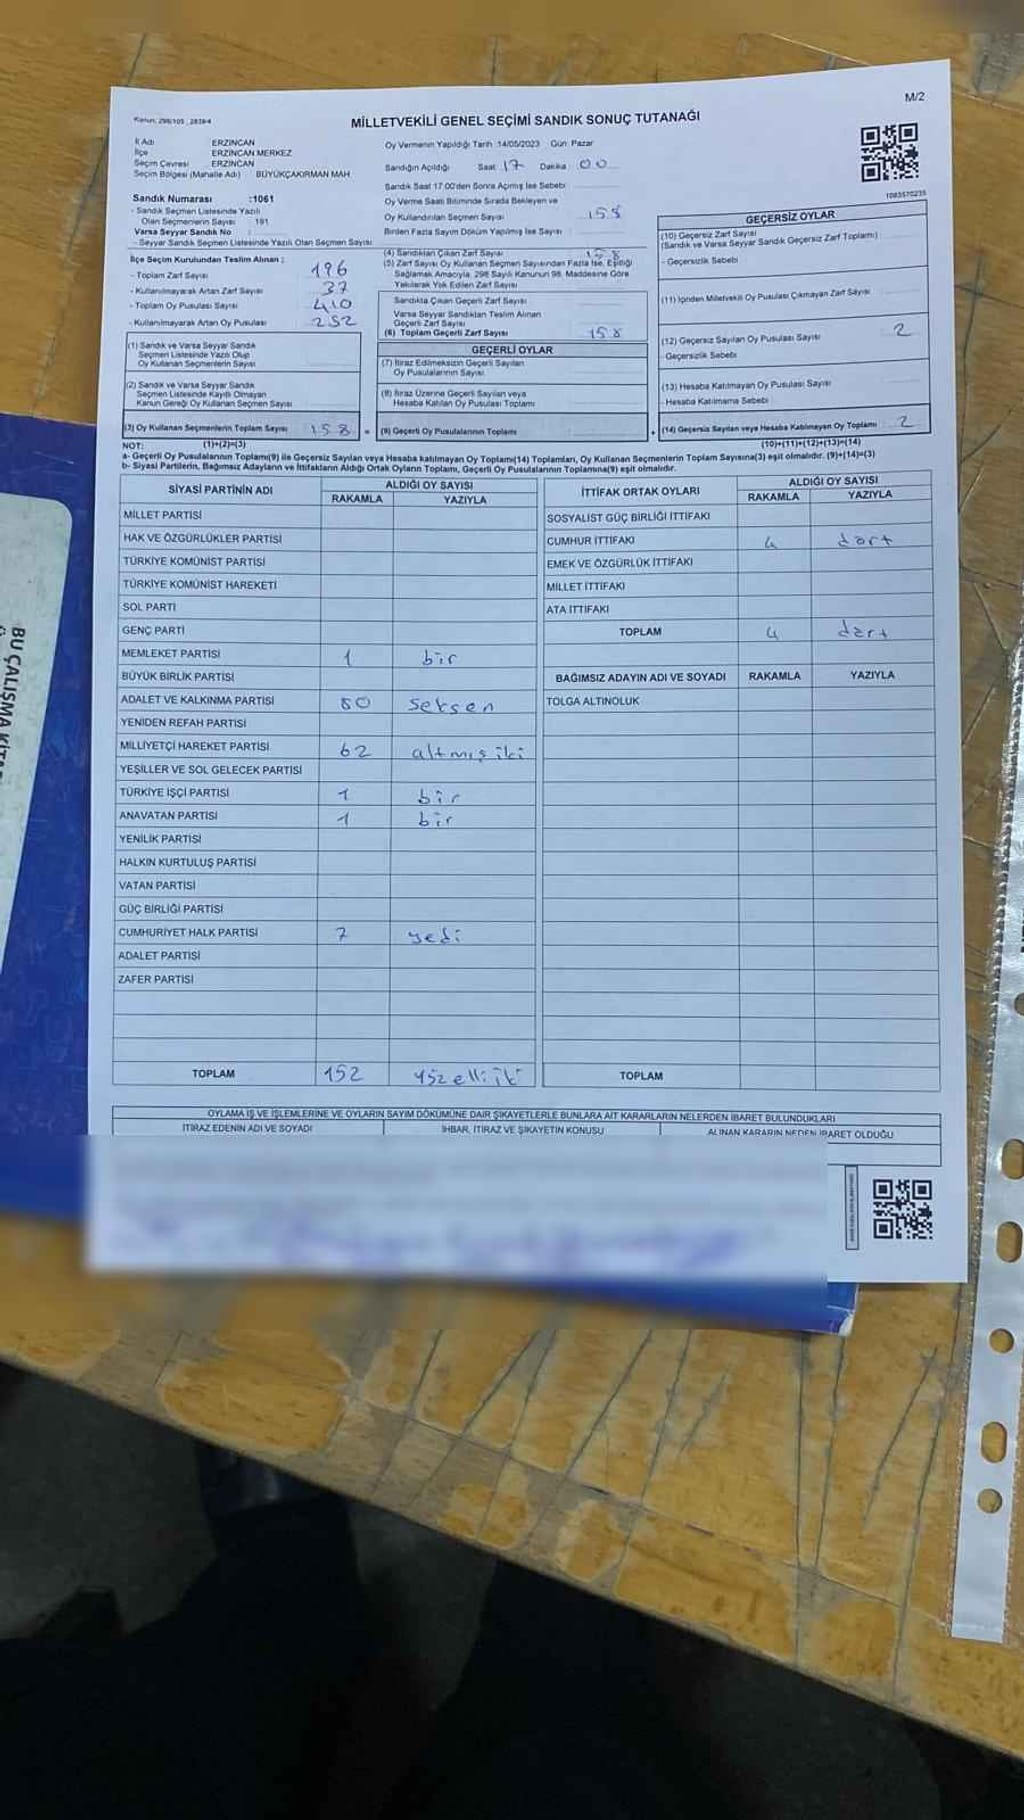 M/2
Kanun: 298/105 , 2839/4
MİLLETVEKİLİ GENEL SEÇİMİ SANDIK SONUÇ TUTANAĞI
İl Adı ERZİNCAN
İlçe ERZİNCAN MERKEZ
Seçim Çevresi ERZİNCAN
Seçim Bölgesi (Mahalle Adı) BÜYÜKÇAKIRMAN MAH
Sandık Numarası :1061
- Sandık Seçmen Listesinde Yazılı
Olan Seçmenlerin Sayısı : 191
Varsa Seyyar Sandık No :
- Seyyar Sandık Seçmen Listesinde Yazılı Olan Seçmen Sayısı:
İlçe Seçim Kurulundan Teslim Alınan ;
- Toplam Zarf Sayısı 196
- Kullanılmayarak Artan Zarf Sayısı 37
- Toplam Oy Pusulası Sayısı 410
- Kullanılmayarak Artan Oy Pusulası 252
(1) Sandık ve Varsa Seyyar Sandık
Seçmen Listesinde Yazılı Olup
Oy Kullanan Seçmenlerin Sayısı
(2) Sandık ve Varsa Seyyar Sandık
Seçmen Listesinde Kayıtlı Olmayan
Kanun Gereği Oy Kullanan Seçmen Sayısı
(3) Oy Kullanan Seçmenlerin Toplam Sayısı 158
Oy Vermenin Yapıldığı Tarih :14/05/2023 Gün: Pazar
Sandığın Açıldığı Saat 17 Dakika 00
Sandık Saat 17:00'den Sonra Açımış İse Sebebi
Oy Verme Saati Bitiminde Sırada Bekleyen ve
Oy Kullandırılan Seçmen Sayısı 158
Birden Fazla Sayım Döküm Yapılmış İse Sayısı
(4) Sandıktan Çıkan Zarf Sayısı 158
(5) Zarf Sayısı Oy Kullanan Seçmen Sayısından Fazla İse, Eşitliği
Sağlamak Amacıyla, 298 Sayılı Kanunun 98. Maddesine Göre
Yakılarak Yok Edilen Zarf Sayısı
Sandıkta Çıkan Geçerli Zarf Sayısı
Varsa Seyyar Sandıktan Teslim Alınan
Geçerli Zarf Sayısı
(6) Toplam Geçerli Zarf Sayısı 158
GEÇERLİ OYLAR
(7) İtiraz Edilmeksizin Geçerli Sayılan
Oy Pusulalarının Sayısı
(8) İtiraz Üzerine Geçerli Sayılan veya
Hesaba Katılan Oy Pusulası Toplamı
= (9) Geçerli Oy Pusulalarının Toplamı
1083570235
GEÇERSİZ OYLAR
(10) Geçersiz Zarf Sayısı
(Sandık ve Varsa Seyyar Sandık Geçersiz Zarf Toplamı)
- Geçersizlik Sebebi
(11) İçinden Milletvekili Oy Pusulası Çıkmayan Zarf Sayısı
(12) Geçersiz Sayılan Oy Pusulası Sayısı 2
- Geçersizlik Sebebi
(13) Hesaba Katılmayan Oy Pusulası Sayısı
- Hesaba Katılmama Sebebi
+ (14) Geçersiz Sayılan veya Hesaba Katılmayan Oy Toplamı 2
NOT: (1)+(2)=(3) (10)+(11)+(12)+(13)=(14)
a- Geçerli Oy Pusulalarının Toplamı(9) ile Geçersiz Sayılan veya Hesaba katılmayan Oy Toplamı(14) Toplamları, Oy Kullanan Seçmenlerin Toplam Sayısına(3) eşit olmalıdır. (9)+(14)=(3)
b- Siyasi Partilerin, Bağımsız Adayların ve İttifakların Aldığı Ortak Oyların Toplamı, Geçerli Oy Pusulalarının Toplamına(9) eşit olmalıdır.
SİYASİ PARTİNİN ADI ALDIĞI OY SAYISI
RAKAMLA YAZIYLA
MİLLET PARTİSİ
HAK VE ÖZGÜRLÜKLER PARTİSİ
TÜRKİYE KOMÜNİST PARTİSİ
TÜRKİYE KOMÜNİST HAREKETİ
SOL PARTİ
GENÇ PARTİ
MEMLEKET PARTİSİ 1 bir
BÜYÜK BİRLİK PARTİSİ
ADALET VE KALKINMA PARTİSİ 80 seksen
YENİDEN REFAH PARTİSİ
MİLLİYETÇİ HAREKET PARTİSİ 62 altmış iki
YEŞİLLER VE SOL GELECEK PARTİSİ
TÜRKİYE İŞÇİ PARTİSİ 1 bir
ANAVATAN PARTİSİ 1 bir
YENİLİK PARTİSİ
HALKIN KURTULUŞ PARTİSİ
VATAN PARTİSİ
GÜÇ BİRLİĞİ PARTİSİ
CUMHURİYET HALK PARTİSİ 7 yedi
ADALET PARTİSİ
ZAFER PARTİSİ
TOPLAM 152 yüzelliiki
İTTİFAK ORTAK OYLARI ALDIĞI OY SAYISI
RAKAMLA YAZIYLA
SOSYALİST GÜÇ BİRLİĞİ İTTİFAKI
CUMHUR İTTİFAKI 4 dört
EMEK VE ÖZGÜRLÜK İTTİFAKI
MİLLET İTTİFAKI
ATA İTTİFAKI
TOPLAM 4 dört
BAĞIMSIZ ADAYIN ADI VE SOYADI RAKAMLA YAZIYLA
TOLGA ALTINOLUK
TOPLAM
OYLAMA İŞ VE İŞLEMLERİNE VE OYLARIN SAYIM DÖKÜMÜNE DAİR ŞİKAYETLERLE BUNLARA AİT KARARLARIN NELERDEN İBARET BULUNDUKLARI
İTİRAZ EDENİN ADI VE SOYADI İHBAR, İTİRAZ VE ŞİKAYETİN KONUSU ALINAN KARARIN NEDEN İBARET OLDUĞU
BU ÇALIŞMA KİTA